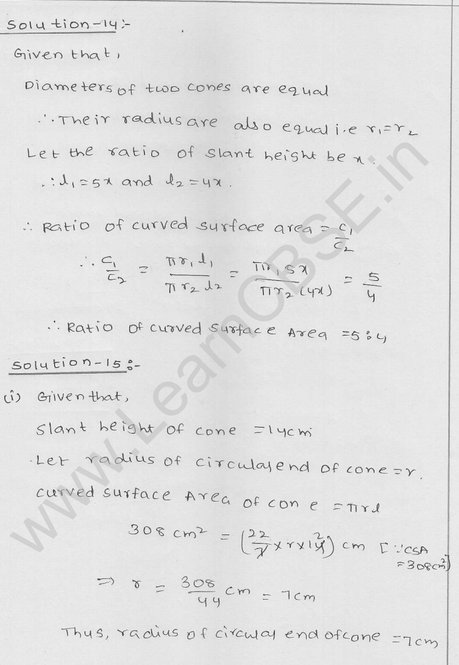 Solution-14:-
Given that,
Diameters of two cones are equal
∴ Their radius are also equal i.e r₁=r₂
Let the ratio of slant height be x.
∴ l₁=5x and l₂=4x.
∴ Ratio of curved surface area = C₁/C₂
∴ C₁/C₂ = πr₁l₁/πr₂l₂ = πr₁5x/πr₂(4x) = 5/4
∴ Ratio of curved surface Area =5:4
Solution-15:-
(i) Given that,
Slant height of cone =14cm
Let radius of circular end of cone=r.
Curved surface Area of cone =πrl
308 cm² = (22/7 × r × 14 2) cm [∵CSA =308cm²]
⇒ r = 308/44 cm = 7cm
Thus, radius of circular end of cone =7cm
www.LearnCBSE.in